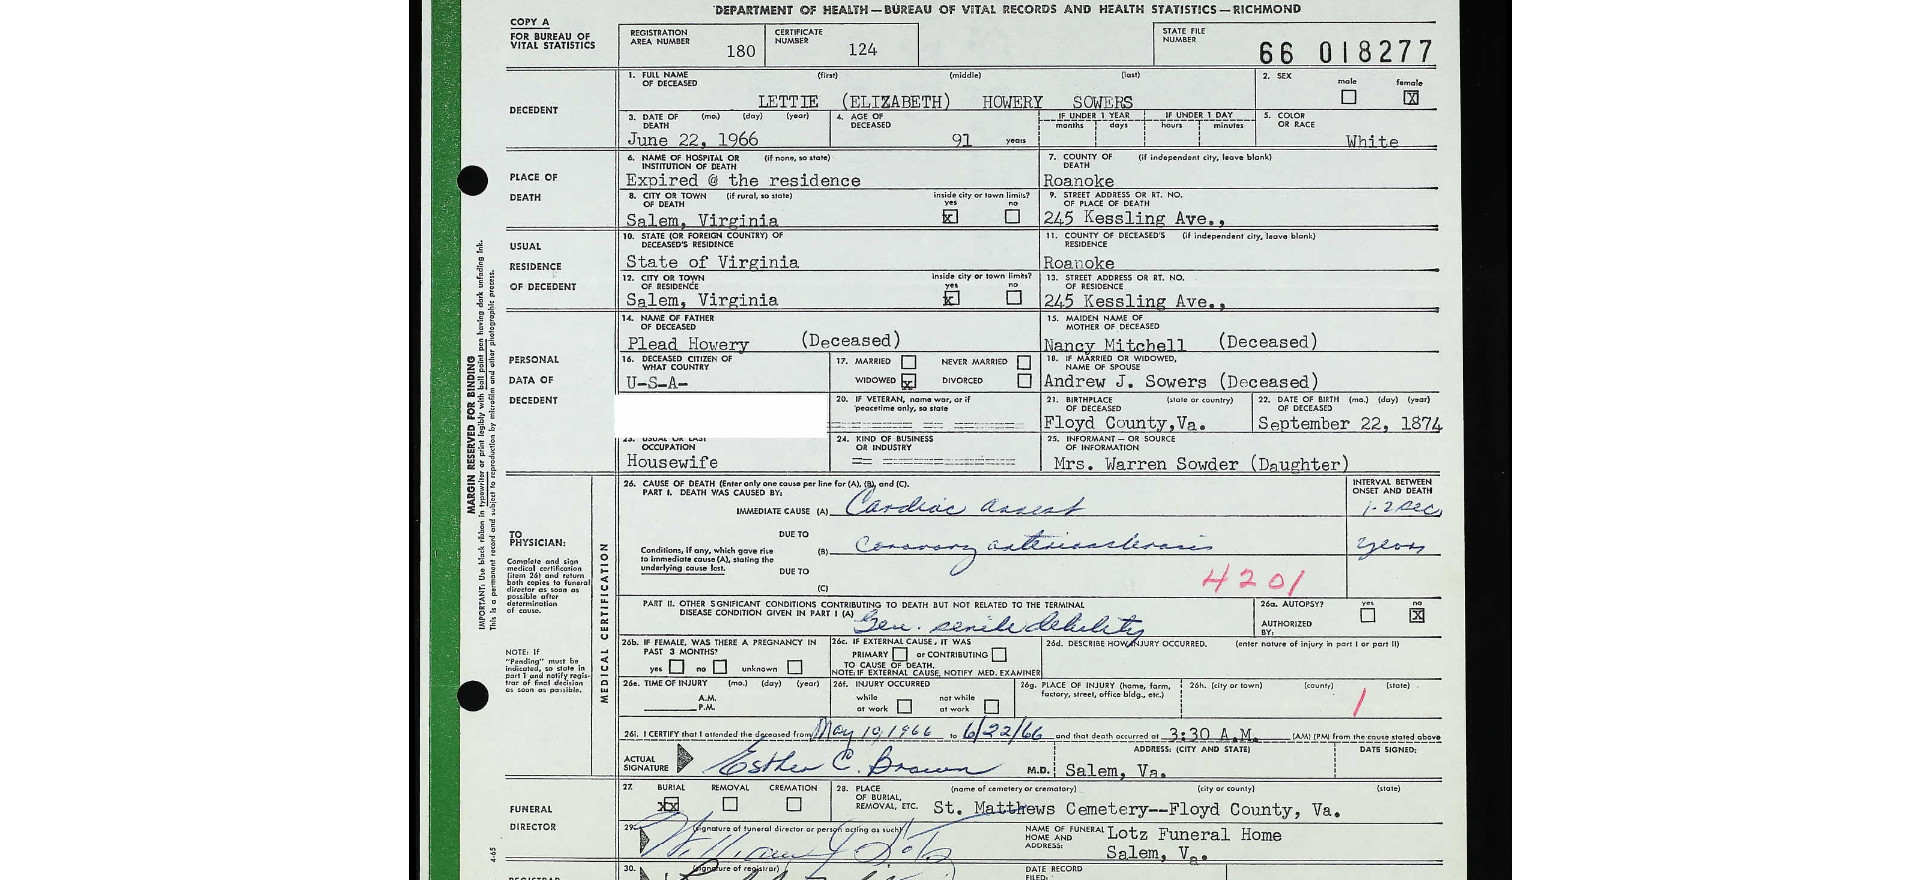 DEPARTMENT OF HEALTH—BUREAU OF VITAL RECORDS AND HEALTH STATISTICS—RICHMOND
COPY A
FOR BUREAU OF
VITAL STATISTICS
REGISTRATION
AREA NUMBER 180
CERTIFICATE
NUMBER 124
STATE FILE
NUMBER 66 018277
DECEDENT
1. FULL NAME (first) (middle) (last)
OF DECEASED
LETTIE (ELIZABETH) HOWERY SOWERS
2. SEX male female
X
3. DATE OF (mo.) (day) (year)
DEATH
June 22, 1966
4. AGE OF
DECEASED
91 years
IF UNDER 1 YEAR IF UNDER 1 DAY
months days hours minutes
5. COLOR
OR RACE
White
PLACE OF
DEATH
6. NAME OF HOSPITAL OR (if none, so state)
INSTITUTION OF DEATH
Expired @ the residence
7. COUNTY OF (if independent city, leave blank)
DEATH
Roanoke
8. CITY OR TOWN (if rural, so state) inside city or town limits?
OF DEATH yes no
Salem, Virginia x
9. STREET ADDRESS OR RT. NO.
OF PLACE OF DEATH
245 Kessling Ave.,
USUAL
RESIDENCE
OF DECEDENT
10. STATE (OR FOREIGN COUNTRY) OF
DECEASED'S RESIDENCE
State of Virginia
11. COUNTY OF DECEASED'S (if independent city, leave blank)
RESIDENCE
Roanoke
12. CITY OR TOWN inside city or town limits?
OF RESIDENCE yes no
Salem, Virginia x
13. STREET ADDRESS OR RT. NO.
OF RESIDENCE
245 Kessling Ave.,
PERSONAL
DATA OF
DECEDENT
14. NAME OF FATHER
OF DECEASED
Plead Howery (Deceased)
15. MAIDEN NAME OF
MOTHER OF DECEASED
Nancy Mitchell (Deceased)
16. DECEASED CITIZEN OF
WHAT COUNTRY
U-S-A-
17. MARRIED NEVER MARRIED
WIDOWED x DIVORCED
18. IF MARRIED OR WIDOWED,
NAME OF SPOUSE
Andrew J. Sowers (Deceased)
20. IF VETERAN, name war, or if
peacetime only, so state
21. BIRTHPLACE (state or country)
OF DECEASED
Floyd County,Va.
22. DATE OF BIRTH (mo.) (day) (year)
OF DECEASED
September 22, 1874
23. USUAL OR LAST
OCCUPATION
Housewife
24. KIND OF BUSINESS
OR INDUSTRY
25. INFORMANT — OR SOURCE
OF INFORMATION
Mrs. Warren Sowder (Daughter)
MARGIN RESERVED FOR BINDING
IMPORTANT: Use black ribbon in typewriter or print legibly with ball point pen having dark unfading ink.
This is a permanent record and subject to reproduction by microfilm and other photographic process.
TO
PHYSICIAN:
Complete and sign
medical certification
(item 26) and return
both copies to funeral
director as soon as
possible after
determination
of cause.
NOTE: If
"Pending" must be
indicated, so state in
part 1 and notify regis-
trar of final decision
as soon as possible.
MEDICAL CERTIFICATION
26. CAUSE OF DEATH (Enter only one cause per line for (A), (B), and (C).
PART I. DEATH WAS CAUSED BY:
INTERVAL BETWEEN
ONSET AND DEATH
IMMEDIATE CAUSE (A) Cardiac arrest 1-2 sec,
DUE TO
Conditions, if any, which gave rise
to immediate cause (A), stating the
underlying cause last.
(B) coronary arteriosclerosis years
DUE TO
(C)
4201
PART II. OTHER SIGNIFICANT CONDITIONS CONTRIBUTING TO DEATH BUT NOT RELATED TO THE TERMINAL
DISEASE CONDITION GIVEN IN PART I (A)
Gen. senile debility
26a. AUTOPSY? yes no
X
AUTHORIZED
BY:
26b. IF FEMALE, WAS THERE A PREGNANCY IN
PAST 3 MONTHS?
yes no unknown
26c. IF EXTERNAL CAUSE, IT WAS
PRIMARY or CONTRIBUTING
TO CAUSE OF DEATH.
NOTE: IF EXTERNAL CAUSE, NOTIFY MED. EXAMINER
26d. DESCRIBE HOW INJURY OCCURRED. (enter nature of injury in part I or part II)
26e. TIME OF INJURY (mo.) (day) (year)
A.M.
P.M.
26f. INJURY OCCURRED
while not while
at work at work
26g. PLACE OF INJURY (home, farm,
factory, street, office bldg., etc.)
26h. (city or town) (county) (state)
1
26i. I CERTIFY that I attended the deceased from May 10, 1966 to 6/22/66 and that death occurred at 3:30 A.M. (AM) (PM) from the cause stated above
ACTUAL
SIGNATURE Esther C. Brown M.D.
ADDRESS: (CITY AND STATE)
Salem, Va.
DATE SIGNED:
FUNERAL
DIRECTOR
27. BURIAL REMOVAL CREMATION
xx
28. PLACE (name of cemetery or crematory) (city or county) (state)
OF BURIAL,
REMOVAL, ETC. St. Matthews Cemetery--Floyd County, Va.
29. (signature of funeral director or person acting as such)
NAME OF FUNERAL
HOME AND
ADDRESS:
Lotz Funeral Home
Salem, Va.
4-65
REGISTRAR
30. (signature of registrar)
DATE RECORD
FILED: